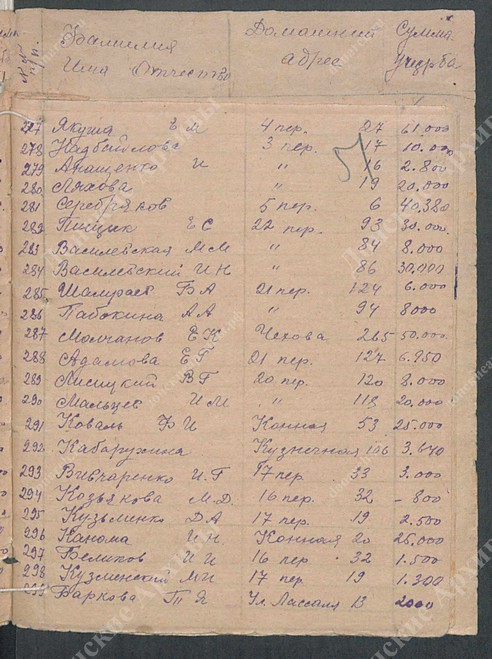 №№ п/п. Фамилия Имя Отчество Домашний адрес Сумма ущерба
277 Якуша Е М 4 пер. 27 61.000
278 Надбойлова 3 пер. 17 10.000
279 Анащенко И " 16 2.800
280 Ляхова " 19 20.000
281 Серебряков 5 пер. 6 40.380
282 Пищик Е С 22 пер. 93 30.000
283 Василевская М М " 84 8.000
284 Василевский И Н " 86 30.000
285 Шамраев Б А 21 пер. 124 6.000
286 Пабокина А А " 94 8000
287 Молчанов Е К Чехова 265 50.000
288 Адамова Е Г 21 пер. 127 6.950
289 Лисицкий В Г 20 пер. 120 8.000
290 Мальцев И М " 118 20.000
291 Коваль Ф И Конная 53 25.000
292 Кабаружина Кузнечная 106 3.640
293 Вивчаренко И.Г 17 пер. 33 3.000
294 Козьякова М.Д. 16 пер. 32 - 800
295 Кузьменко Д А 17 пер. 19 2.500
296 Канома И Н Конная 20 25.000
297 Великов И И 16 пер. 32 1.500
298 Кузминский М И 17 пер. 19 1.300
299 Варкова Т Я Ул. Лассаля 13 2000